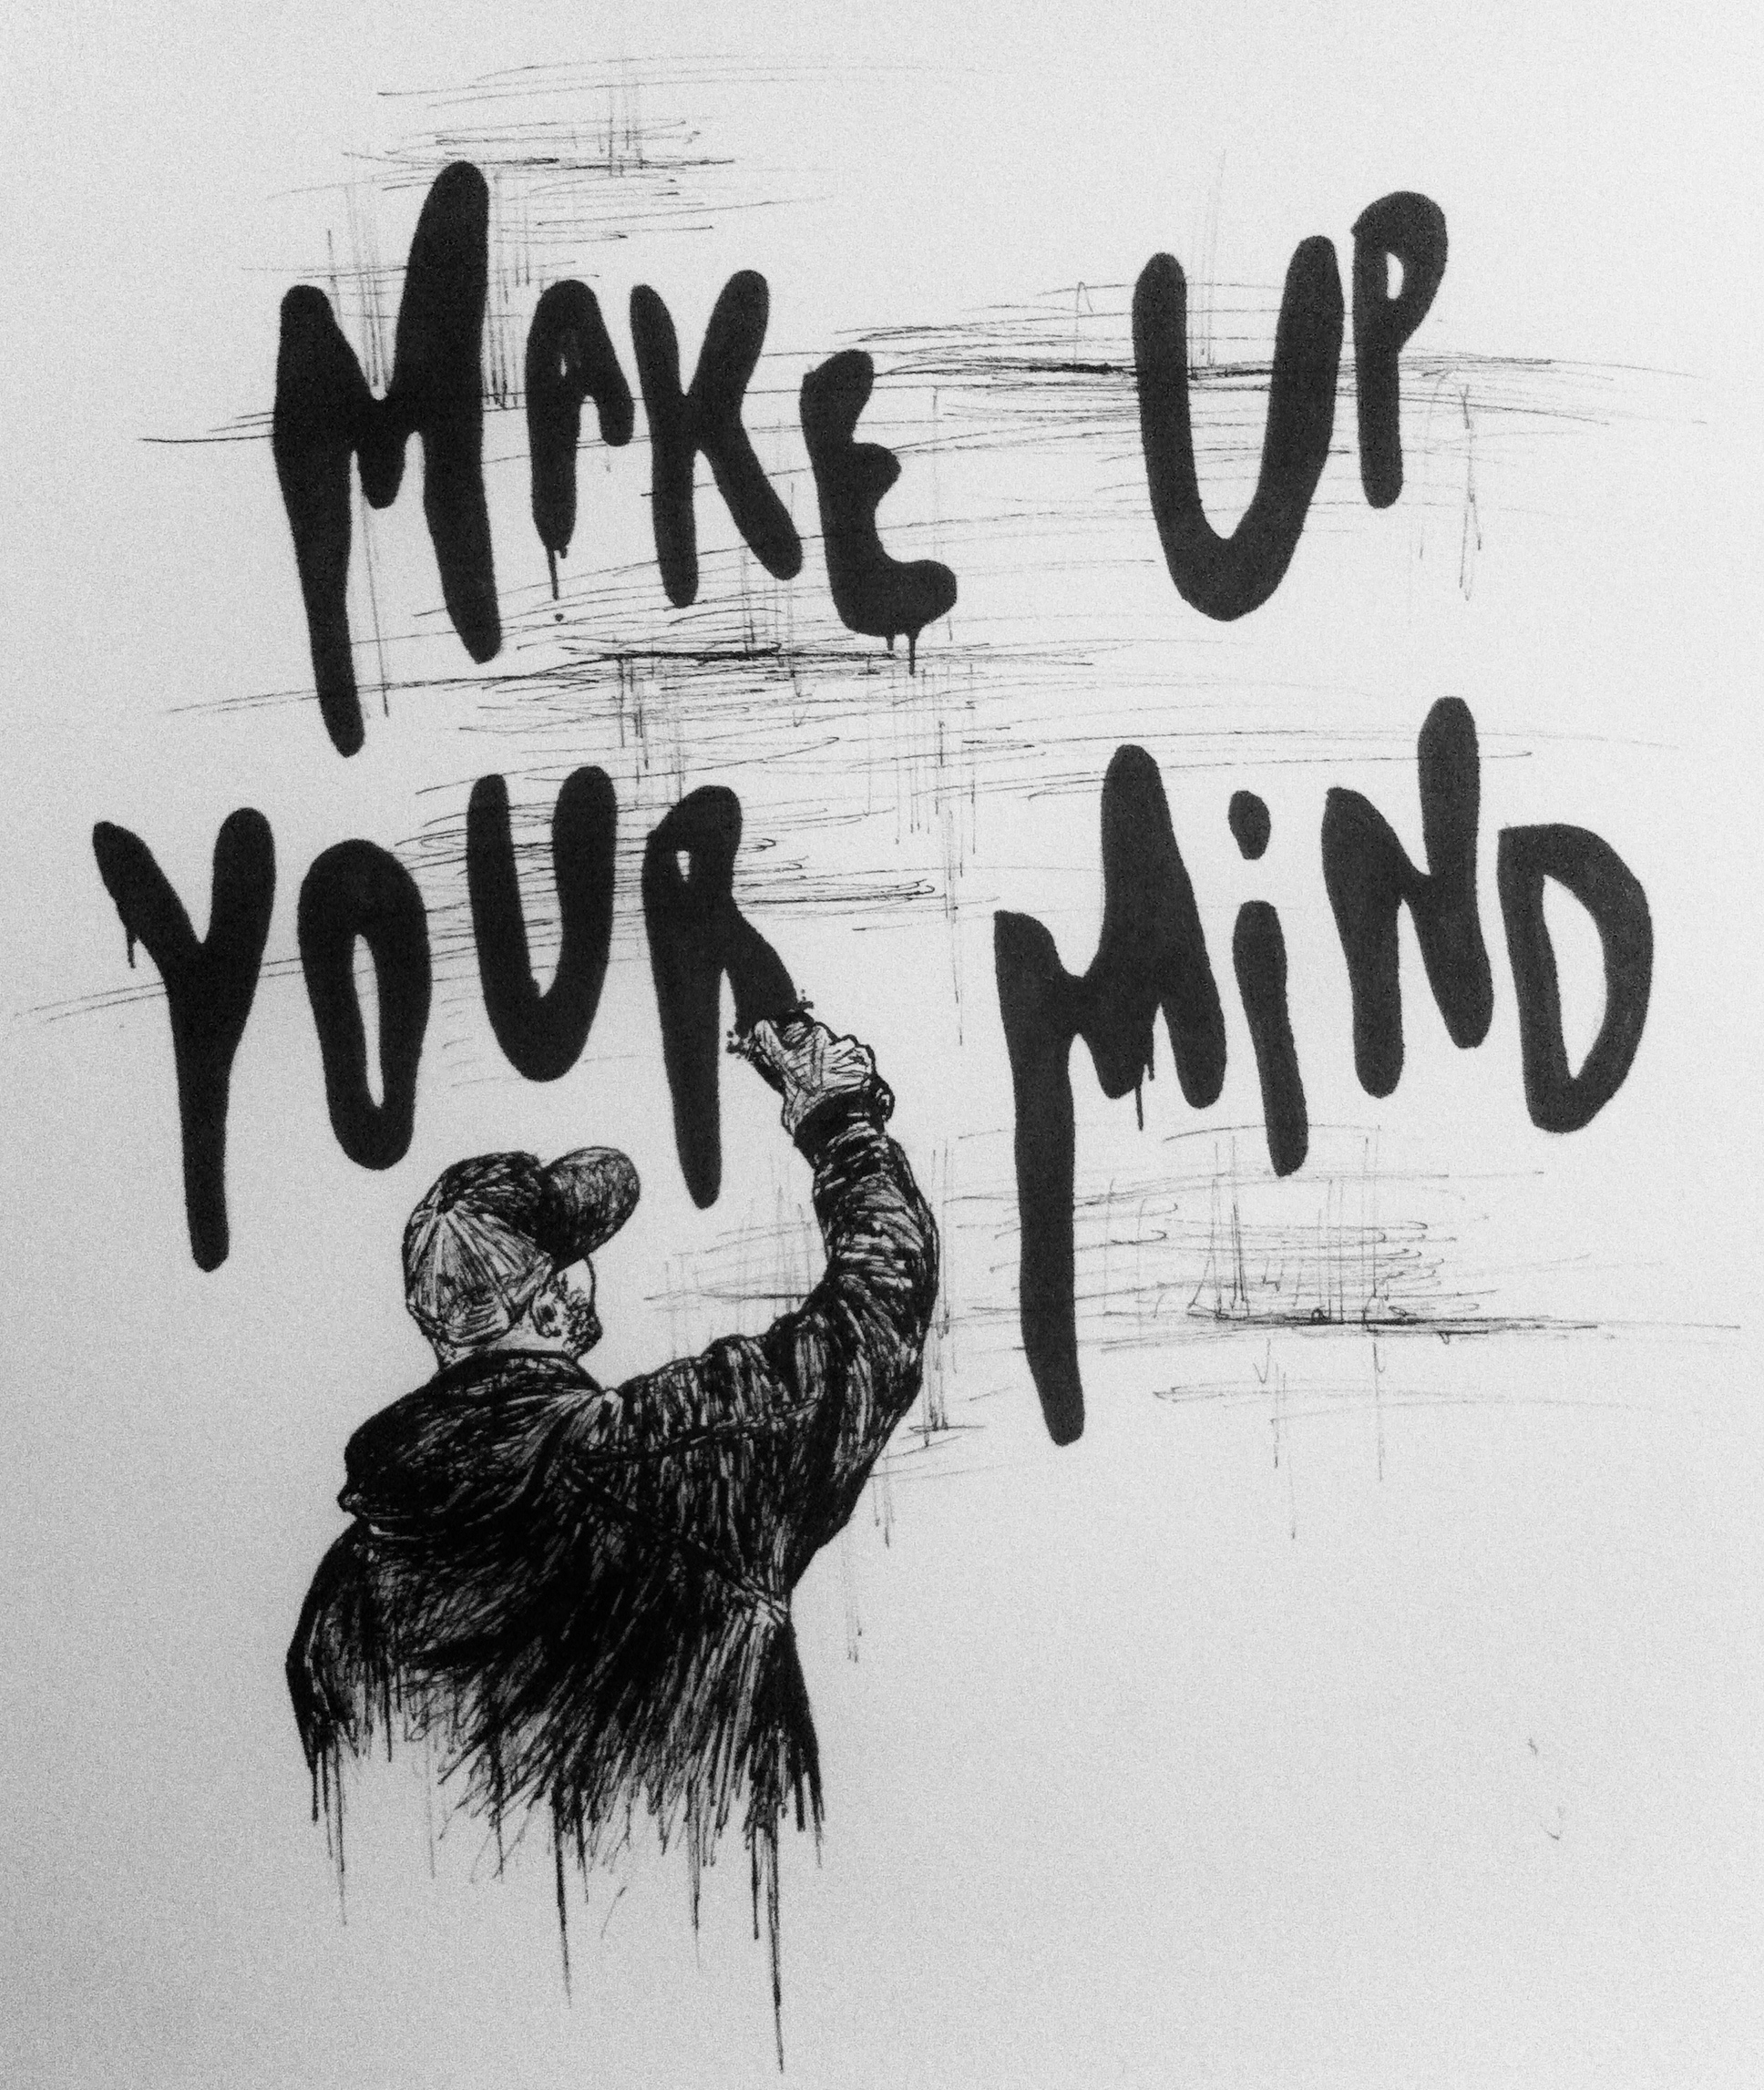 MAKE UP
YOUR MiND